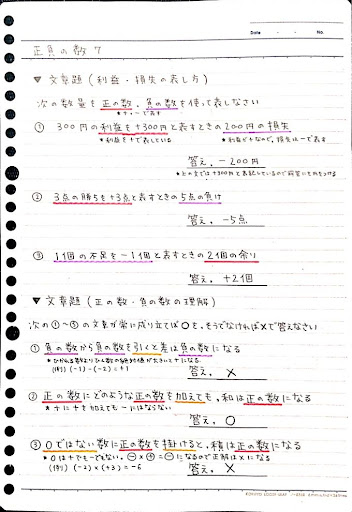 Date
No.
正負の数 7
▼ 文章題 (利益・損失の表し方)
次の数量を正の数、負の数を使って表しなさい
*+,-で表す
① 300円の利益を+300円と表すときの200円の損失
*利益を+で表している *利益が+なので、損失は-で表す
答え. -200円
*上の文では+300円と表記しているので解答にも円をつける
② 3点の勝ちを+3点と表すときの5点の負け
答え. -5点
③ 1個の不足を-1個と表すときの2個の余り
答え. +2個
▼ 文章題 (正の数・負の数の理解)
次の①~③の文章が常に成り立てば○を、そうでなければ×で答えなさい
① 負の数から負の数を引くと差は負の数になる
*ひかれる数よりひく数の絶対値が大きいと+になる
(例) (-1)-(-2)=+1
答え. ×
② 正の数にどのような正の数を加えても、和は正の数になる
*+に+を加えても-にはならない
答え. ○
③ 0ではない数に正の数を掛けると、積は正の数になる
*0は+でも-でもない。⊖×⊕=⊖になるので正解は×になる
(例) (-2)×(+3)=-6
答え. ×